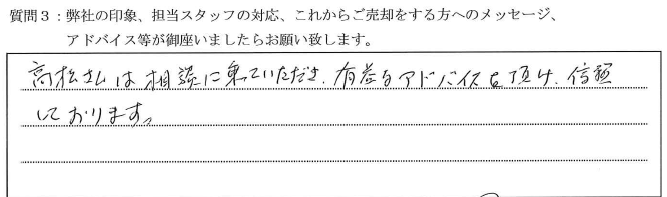 質問３：弊社の印象、担当スタッフの対応、これからご売却をする方へのメッセージ、
アドバイス等が御座いましたらお願い致します。
高松さんは相談に乗っていただき、有益なアドバイスを頂け、信頼
しております。